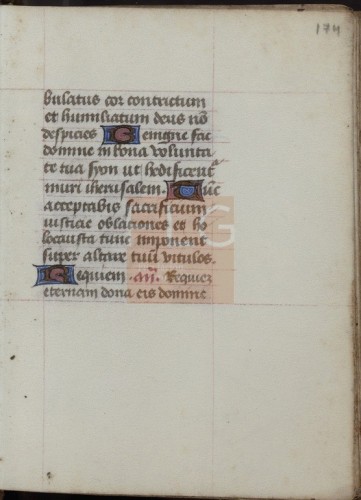 174
bulatus cor contrictum
et humiliatum deus nō
despicies Benigne fac
domine in bona volunta
te tua syon ut hedificent̄
muri iherusalem. Tūc
acceptabis sacrificium
iusticie oblaciones et ho
locausta tunc imponent
super altare tuū vitulos.
Requiem an̄. Requiem
eternam dona eis domine